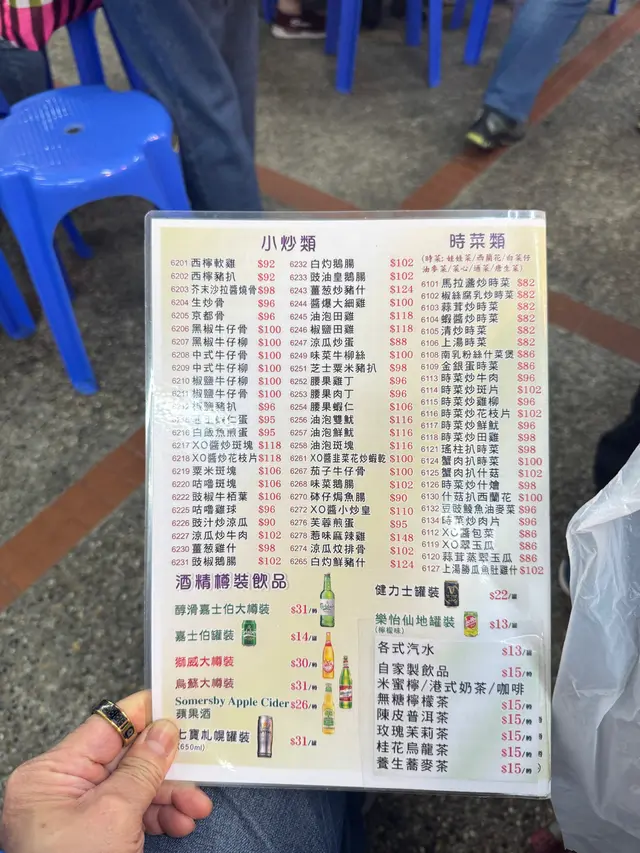 小炒類
6201 西檸軟雞 $92
6202 西檸豬扒 $92
6203 芥末沙拉醬燒骨 $98
6204 生炒骨 $96
6205 京都骨 $96
6206 黑椒牛仔骨 $100
6207 黑椒牛仔柳 $100
6208 中式牛仔骨 $100
6209 中式牛仔柳 $100
6210 椒鹽牛仔柳 $100
6211 椒鹽牛仔骨 $100
椒鹽豬扒 $96
蛋 $95
6216 白飯魚煎蛋 $95
6217 XO醬炒斑塊 $118
6218 XO醬炒花枝片 $118
6219 粟米斑塊 $106
6220 咕嚕斑塊 $106
6222 豉椒牛栢葉 $106
6225 咕嚕雞球 $96
6226 豉汁炒涼瓜 $90
6227 涼瓜炒牛肉 $102
6230 薑葱雞什 $98
6231 豉椒鵝腸 $102
6232 白灼鵝腸 $102
6233 豉油皇鵝腸 $102
6243 薑葱炒豬什 $124
6244 醬爆大細雞 $100
6245 油泡田雞 $118
6246 椒鹽田雞 $118
6247 涼瓜炒蛋 $88
6249 味菜牛柳絲 $100
6251 芝士粟米豬扒 $98
6252 腰果雞丁 $96
6253 腰果肉丁 $96
6254 腰果蝦仁 $106
6256 油泡雙魷 $116
6257 油泡鮮魷 $116
6258 油泡斑塊 $116
6261 XO醬韭菜花炒蝦乾 $100
6267 茄子牛仔骨 $100
6268 味菜鵝腸 $102
6270 砵仔焗魚腸 $90
6272 XO醬小炒皇 $110
6276 芙蓉煎蛋 $95
6278 惹味麻辣雞 $148
6274 涼瓜炆排骨 $102
6265 白灼鮮豬什 $124
時菜類
(時菜: 娃娃菜/西蘭花/白菜仔
油麥菜/菜心/通菜/唐生菜)
6101 馬拉盞炒時菜 $82
6102 椒絲腐乳炒時菜 $82
6103 蒜茸炒時菜 $82
6104 蝦醬炒時菜 $82
6105 清炒時菜 $82
6106 上湯時菜 $82
6108 南乳粉絲什菜煲 $86
6109 金銀蛋時菜 $86
6113 時菜炒牛肉 $96
6114 時菜炒斑片 $102
6115 時菜炒雞柳 $96
6116 時菜炒花枝片 $102
6117 時菜炒鮮魷 $96
6118 時菜炒田雞 $98
6121 瑤柱扒時菜 $98
6124 蟹肉扒時菜 $100
6125 蟹肉扒什菇 $102
6126 時菜炒什燴 $98
6130 什菇扒西蘭花 $100
6132 豆豉鯪魚油麥菜 $96
6134 時菜炒肉片 $96
6112 XO醬包菜 $86
6119 XO翠玉瓜 $86
6120 蒜茸蒸翠玉瓜 $86
6127 上湯勝瓜魚肚雞什 $102
酒精樽裝飲品
醇滑嘉士伯大樽裝 $31/樽
嘉士伯罐裝 $14/罐
獅威大樽裝 $30/樽
烏蘇大樽裝 $31/樽
Somersby Apple Cider $26/樽
蘋果酒
七寶札幌罐裝 $31/罐
(650ml)
健力士罐裝 $22/罐
樂怡仙地罐裝 $13/罐
(檸檬味)
各式汽水 $13/罐
自家製飲品 $15/樽
米蜜檸/港式奶茶/咖啡
無糖檸檬茶 $15/樽
陳皮普洱茶 $15/樽
玫瑰茉莉茶 $15/樽
桂花烏龍茶 $15/樽
養生蕎麥茶 $15/樽